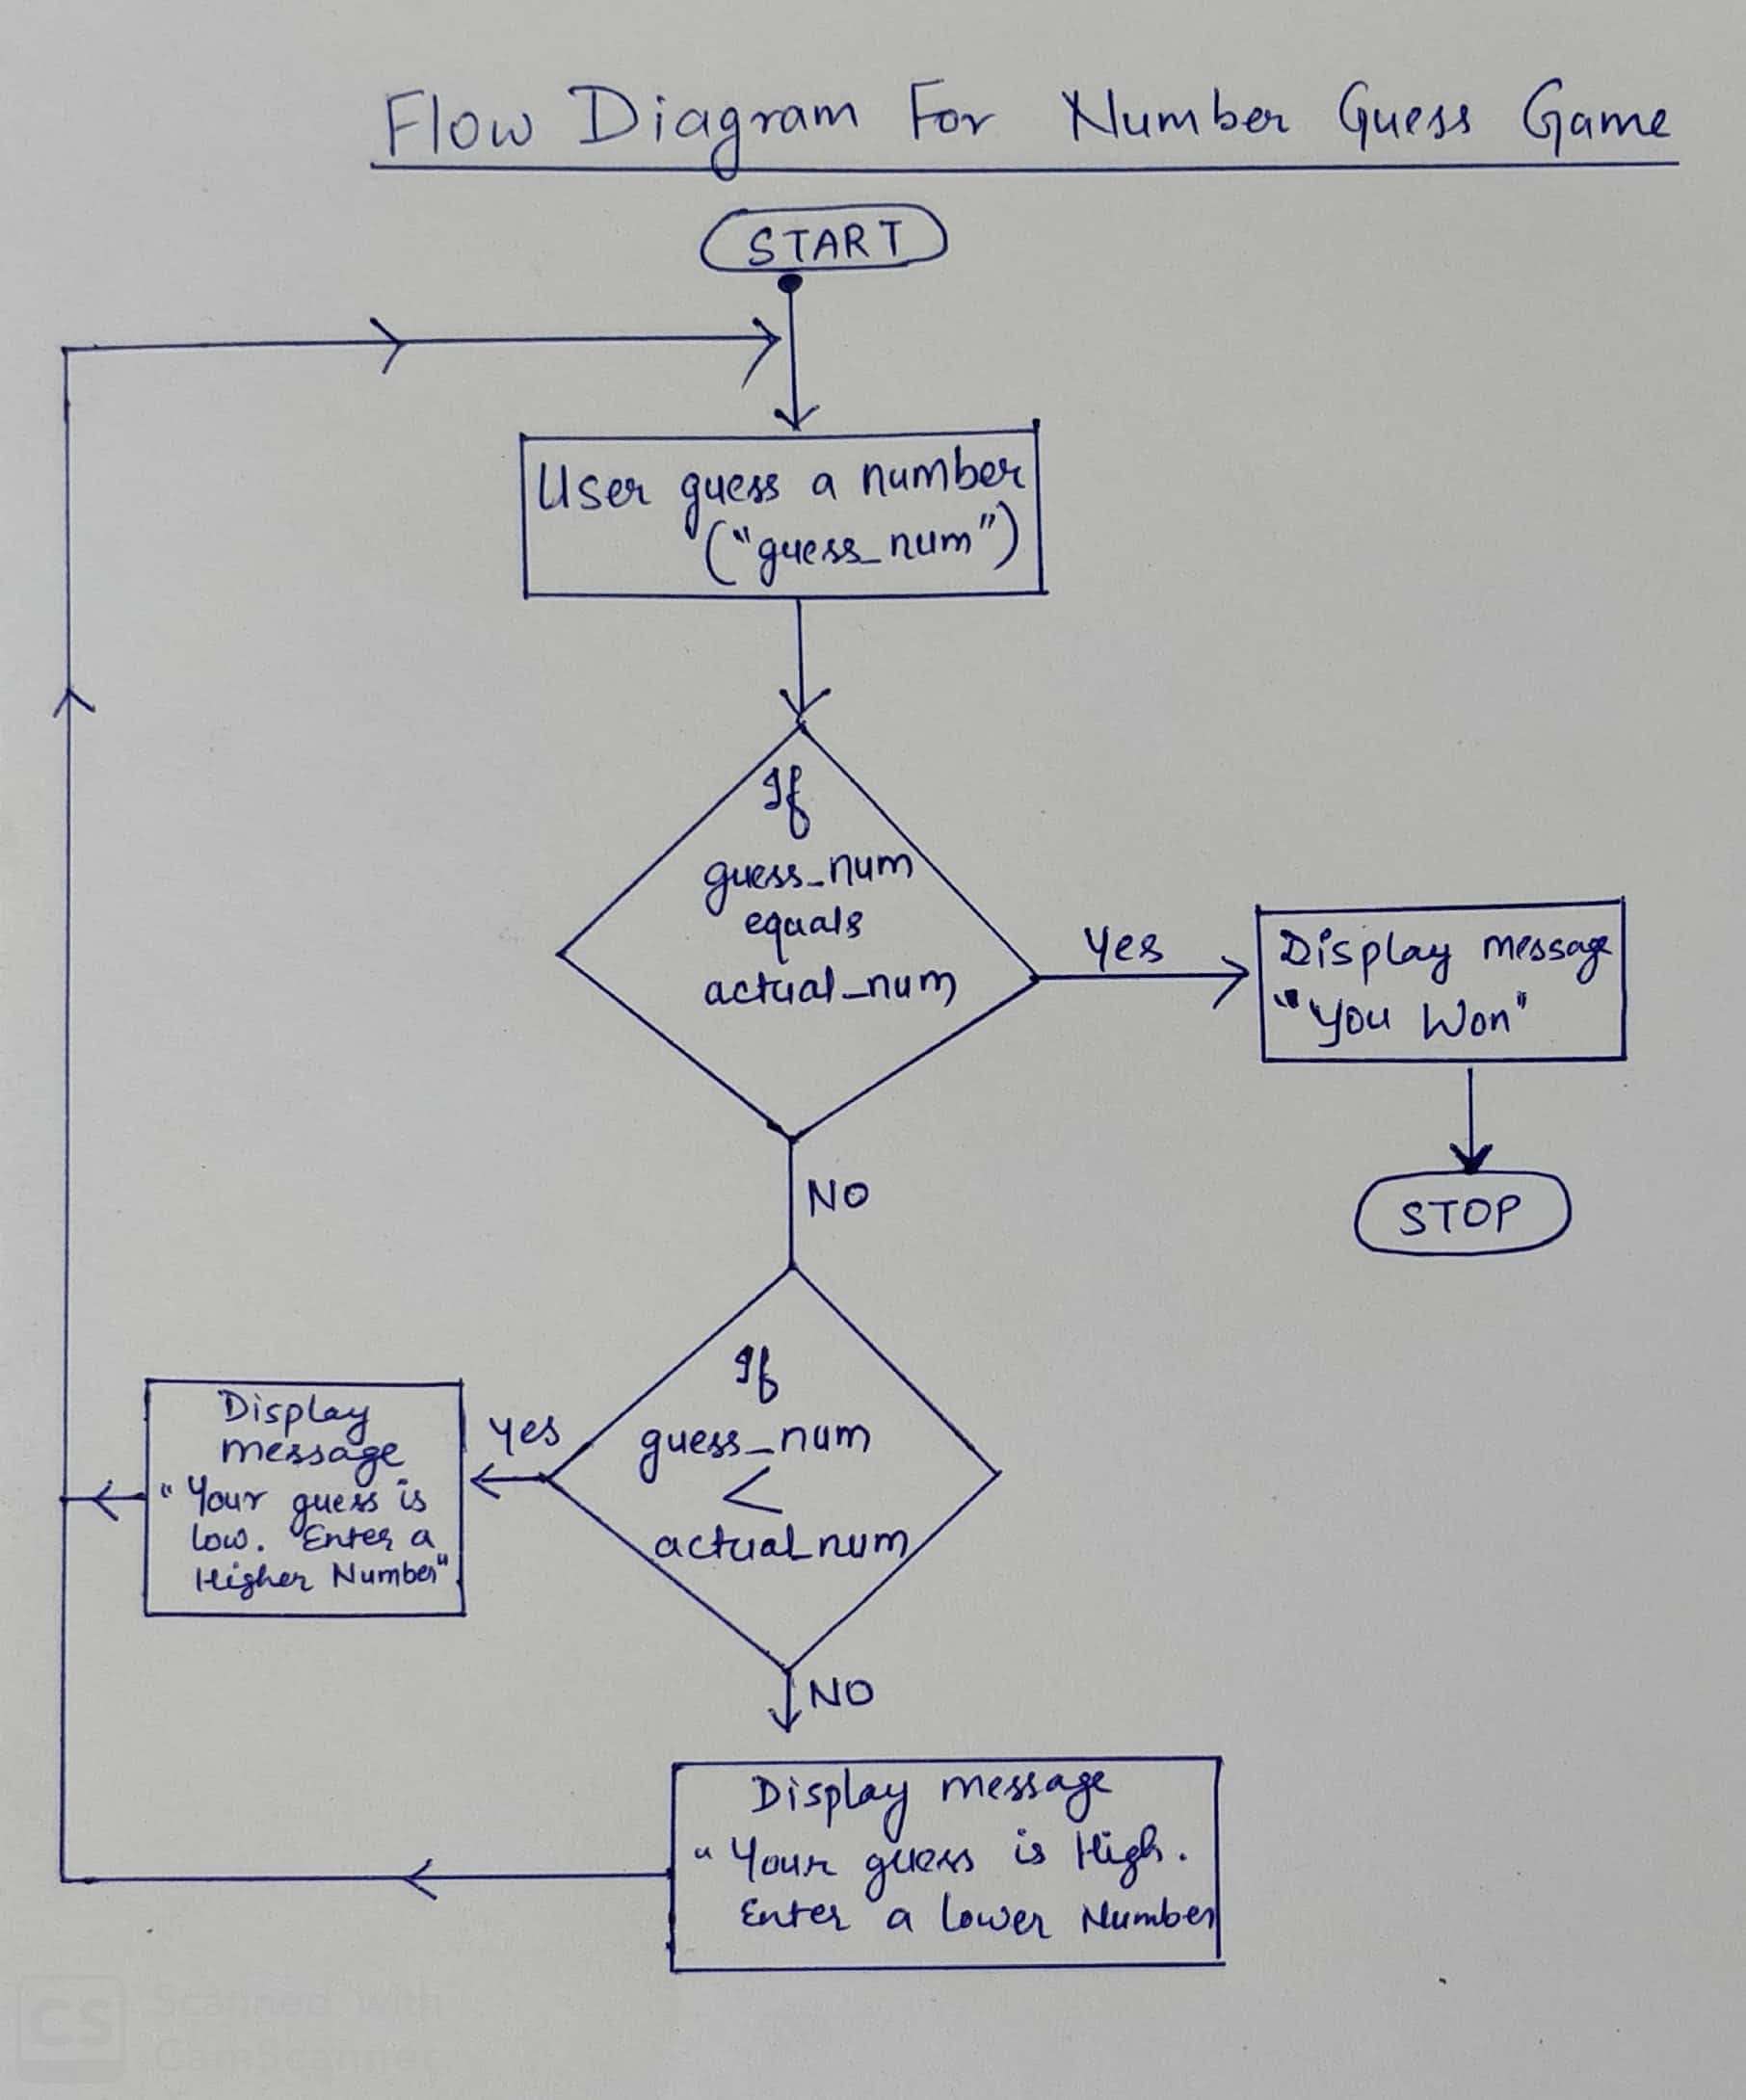 Flow Diagram For Number Guess Game
START
User guess a number
("guess_num")
If
guess_num
equals
actual_num
Yes
Display message
"You Won"
NO
STOP
If
guess_num
<
actual_num
Yes
Display
message
"Your guess is
low. Enter a
Higher Number"
NO
Display message
"Your guess is High.
Enter a lower Number
CS
Scanned with
CamScanner